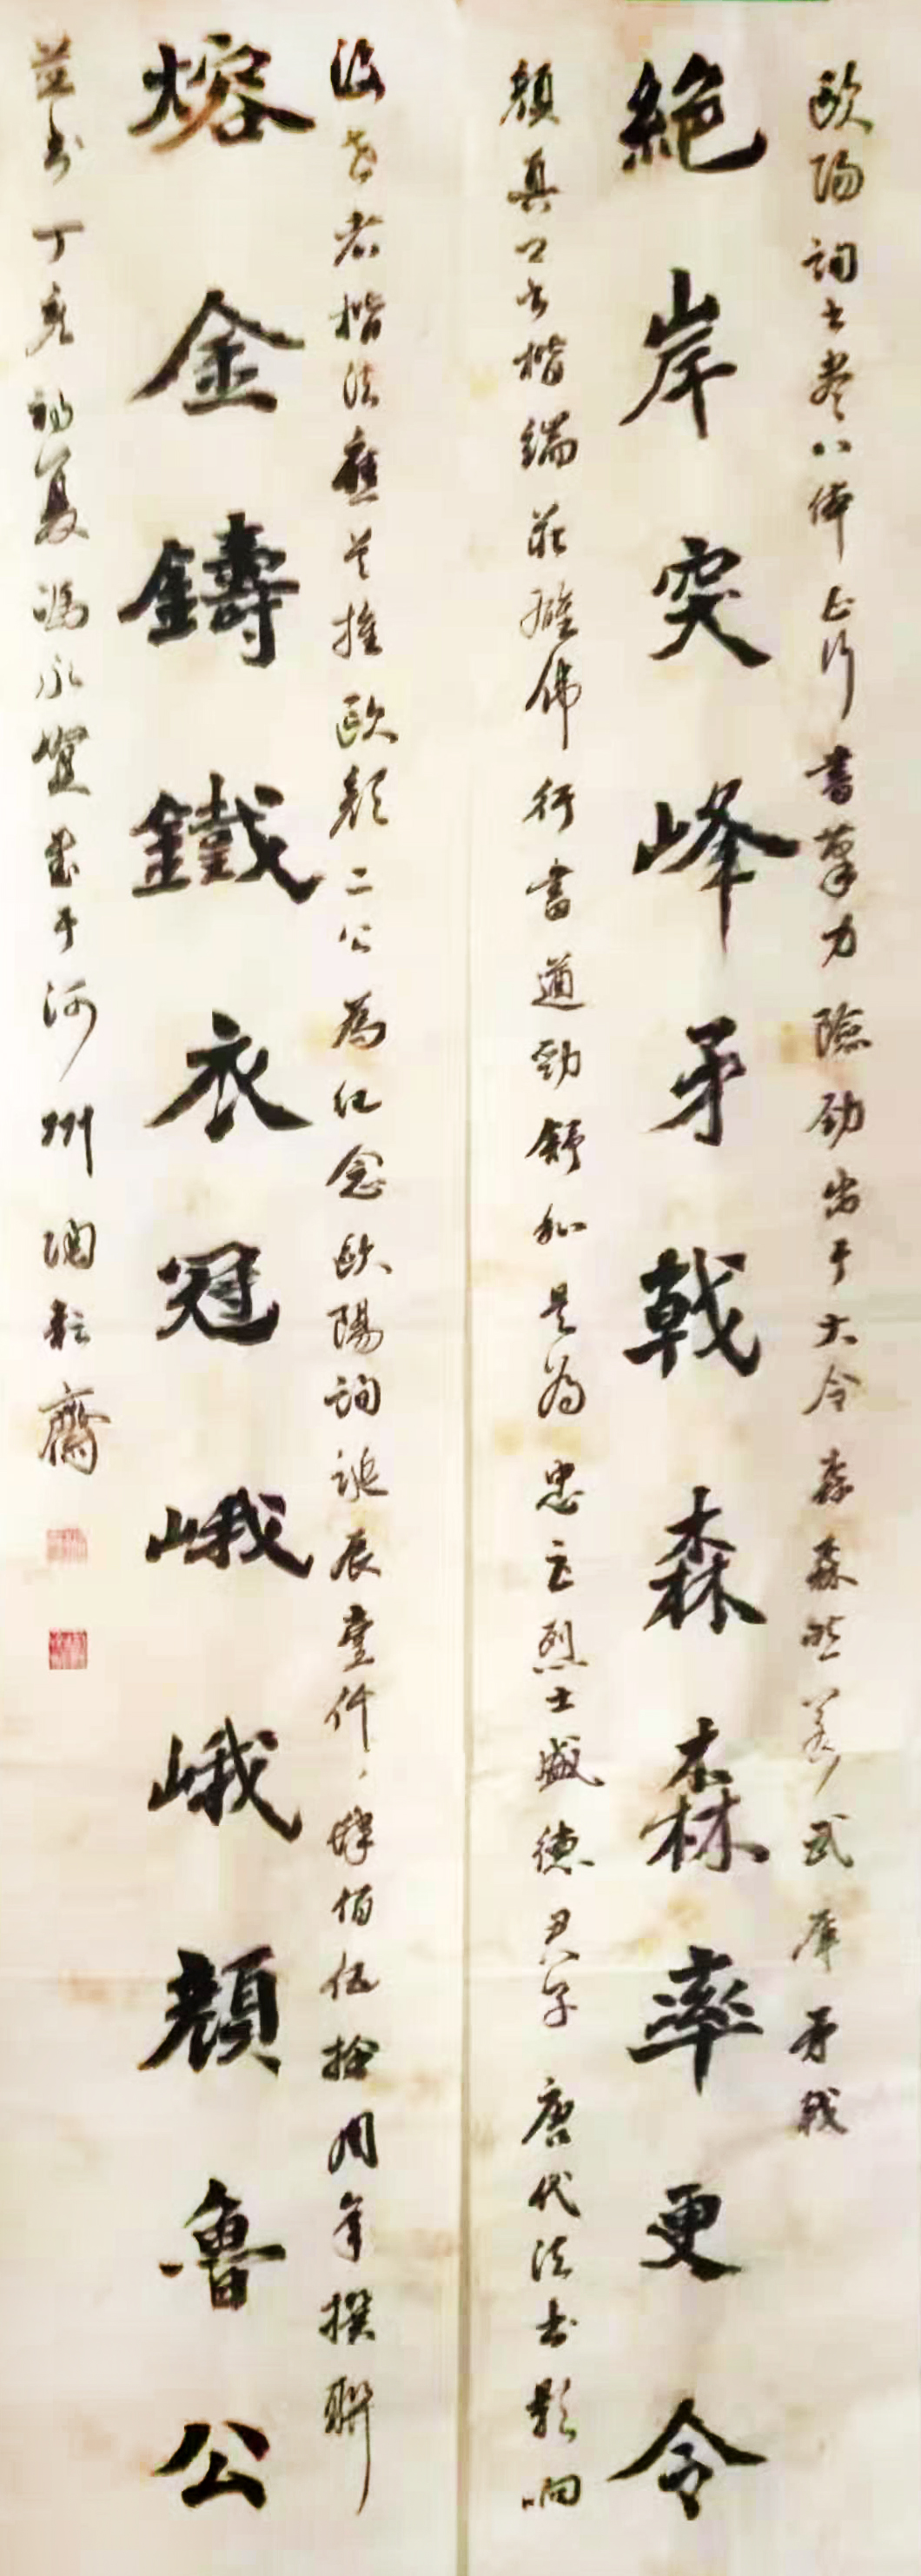 歐陽詢書尽八体正行書筆力險勁出于大令森森然若武庫矛戟
絶岸突峰矛戟森森率更令
顔真卿書楷端莊雄偉行書遒勁舒和是为忠臣烈士盛德君子唐代法书影响
後世者楷法應首推歐顔二公為纪念歐陽詢誕辰壹仟肆佰伍拾周年撰聯
熔金鑄鐵衣冠峨峨顔魯公
并书丁亥初夏馮永宜書于河州潤耘齋